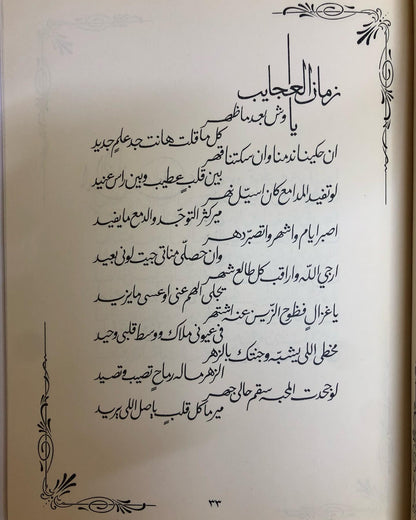 يا زمان العجايب
وش بعد ما ظهر
كل ما قلت هانت جد علمٍ جديد
ان حكينا ندمنا وان سكتنا قهر
بين قلبٍ عطيب وبين راس عنيد
لو تفيد المدامع كان اسيّل نهر
مير كثر التوجّد والدمع ما يفيد
اصبر ايام واشهر واتصبّر دهر
وان حصل لي مناتي جيت لونّي بعيد
ارجي الله واراقب كل طالع شهر
يجلي الهم عني او عسى ما يزيد
يا غزالٍ فظوح الزين عنه اشتهر
في عيوني ملاك ووسط قلبي وحيد
مخطي اللي يشبّه وجنتك بالزهر
الزهر ماله رماحٍ تصيب وتصيد
لو جحدت المحبه سقم حالي جهر
مير ما كل قلبٍ ياصل اللي يريد
٣٣